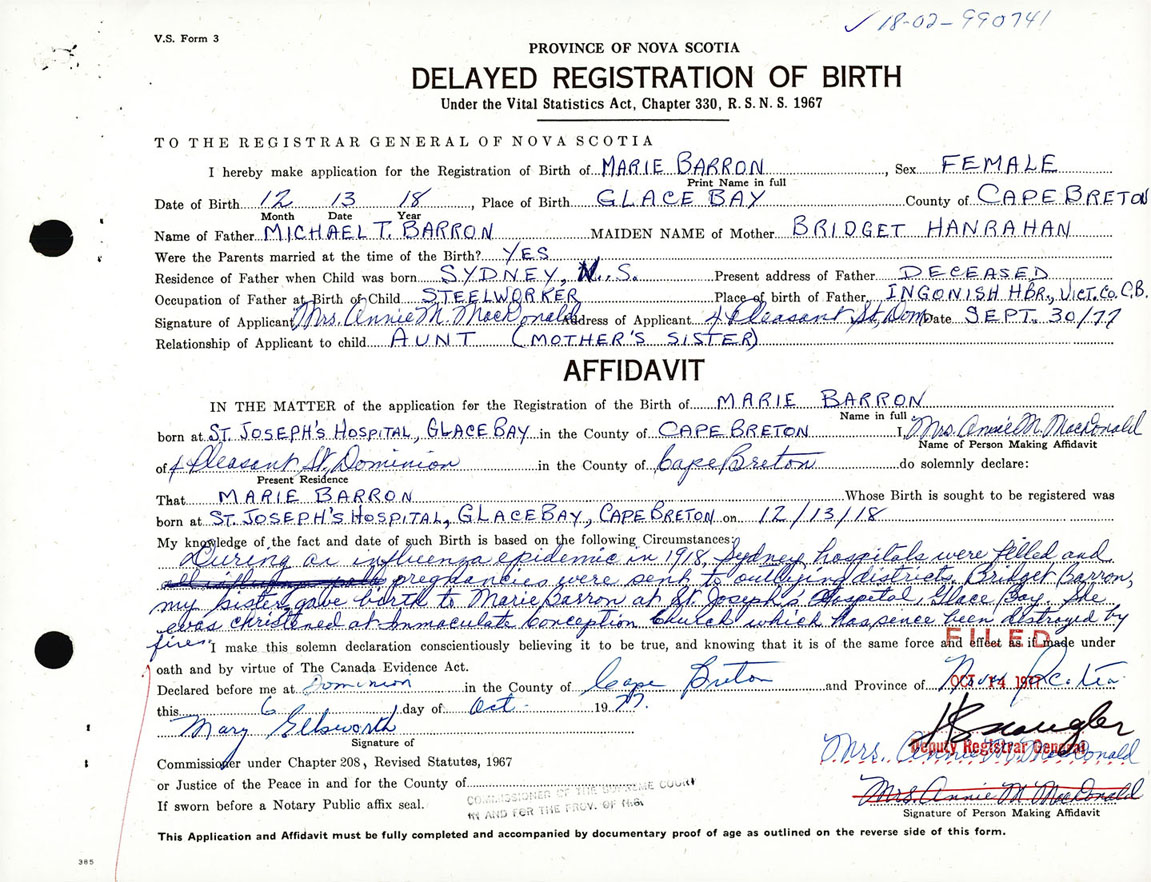 ✓ 18-02-990741
V.S. Form 3
PROVINCE OF NOVA SCOTIA
DELAYED REGISTRATION OF BIRTH
Under the Vital Statistics Act, Chapter 330, R.S.N.S. 1967
TO THE REGISTRAR GENERAL OF NOVA SCOTIA
I hereby make application for the Registration of Birth of MARIE BARRON, Sex FEMALE
Print Name in full
Date of Birth 12 13 18, Place of Birth GLACE BAY County of CAPE BRETON
Month Date Year
Name of Father MICHAEL T. BARRON MAIDEN NAME of Mother BRIDGET HANRAHAN
Were the Parents married at the time of the Birth? YES
Residence of Father when Child was born SYDNEY, N.S. Present address of Father DECEASED
Occupation of Father at Birth of Child STEELWORKER Place of birth of Father INGONISH HBR., VICT. CO. C.B.
Signature of Applicant Mrs. Annie M. MacDonald Address of Applicant 4 Pleasant St, Dom Date SEPT. 30/77
Relationship of Applicant to child AUNT (MOTHER'S SISTER)
AFFIDAVIT
IN THE MATTER of the application for the Registration of the Birth of MARIE BARRON
Name in full
born at ST. JOSEPH'S HOSPITAL, GLACE BAY in the County of CAPE BRETON I, Mrs. Annie M. MacDonald
Name of Person Making Affidavit
of 4 Pleasant St, Dominion in the County of Cape Breton do solemnly declare:
Present Residence
That MARIE BARRON Whose Birth is sought to be registered was
born at ST. JOSEPH'S HOSPITAL, GLACE BAY, CAPE BRETON on 12/13/18
My knowledge of the fact and date of such Birth is based on the following Circumstances:
During an influenza epidemic in 1918, Sydney hospitals were filled and
pregnancies were sent to outlying districts. Bridget Barron,
my sister, gave birth to Marie Barron at St. Joseph's Hospital, Glace Bay. She
was christened at Immaculate Conception Church which has been distroyed by
fire.
I make this solemn declaration conscientiously believing it to be true, and knowing that it is of the same force and effect as if made under
FILED
oath and by virtue of The Canada Evidence Act.
Declared before me at Dominion in the County of Cape Breton and Province of Nova Scotia
OCT 14 1977
this 6 day of Oct. 1977.
Mary Ellsworth
Signature of
Deputy Registrar General
Mrs. Annie M MacDonald
Commissioner under Chapter 208, Revised Statutes, 1967
or Justice of the Peace in and for the County of
If sworn before a Notary Public affix seal.
COMMISSIONER OF THE SUPREME COURT
IN AND FOR THE PROV. OF N.S.
Mrs. Annie M MacDonald
Signature of Person Making Affidavit
This Application and Affidavit must be fully completed and accompanied by documentary proof of age as outlined on the reverse side of this form.
385